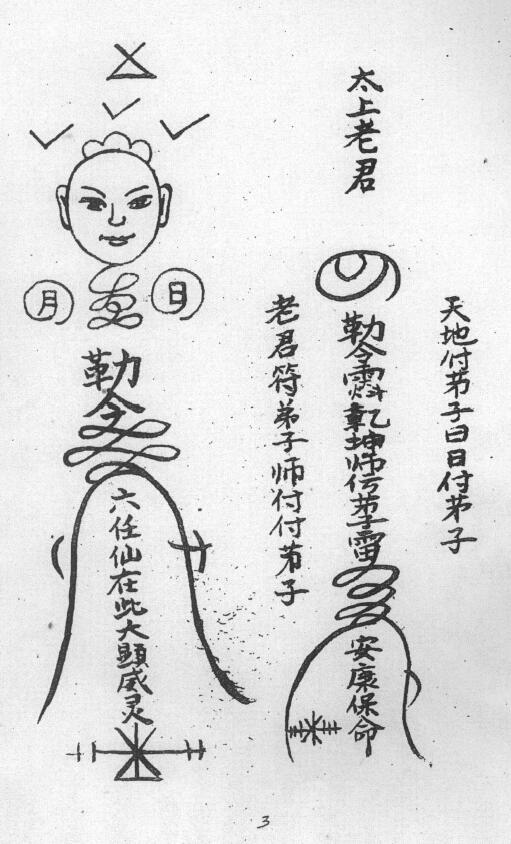 天地付苐子曰日付苐子
太上老君
勒令
乾坤师传弟子雷
安康保命
老君符弟子师付付苐子
日
月
勒令
六任仙在此大顯威灵
3